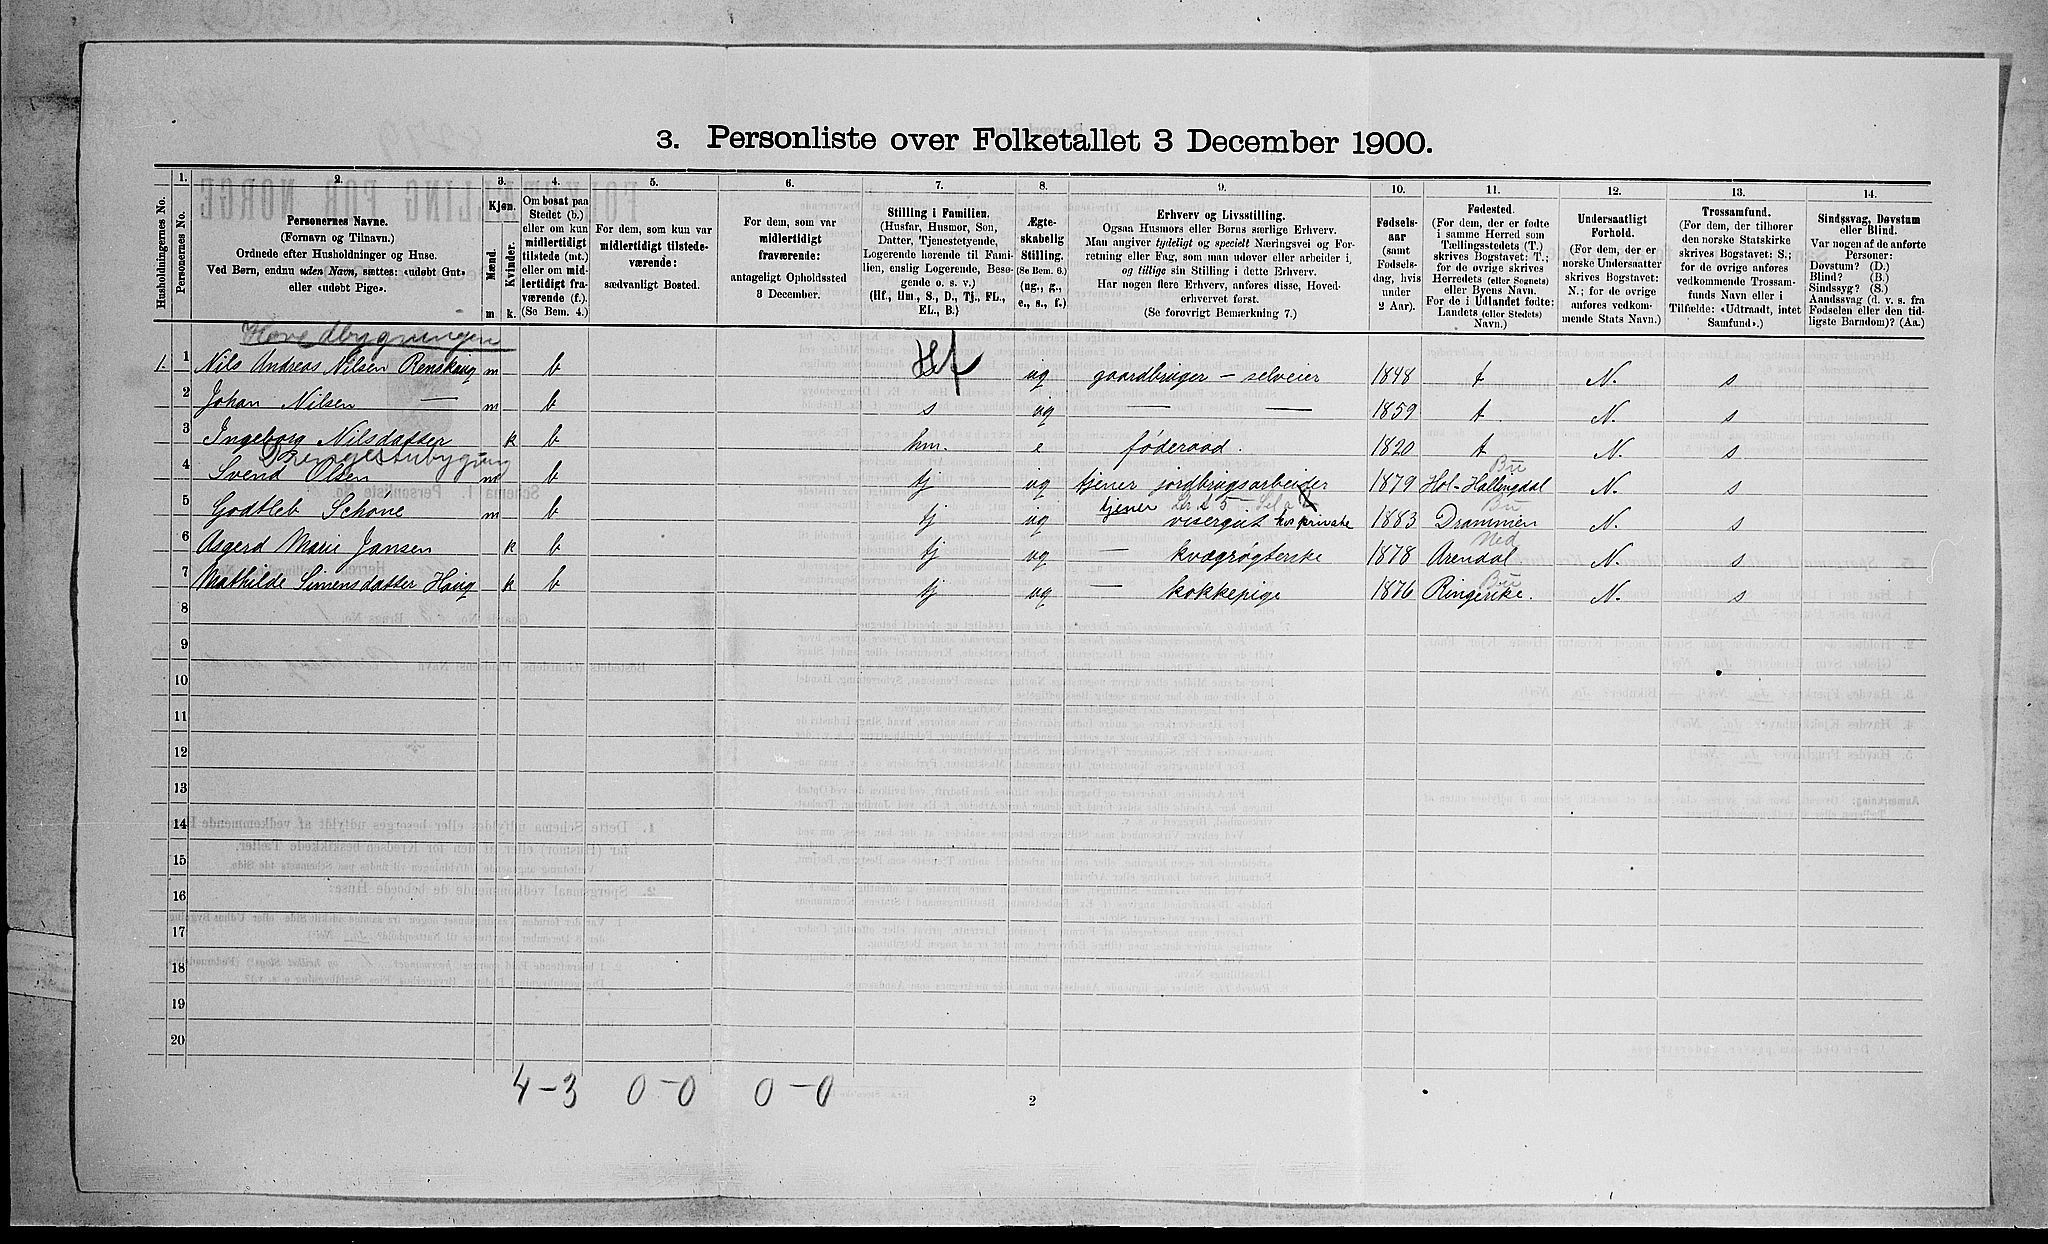 3. Personliste over Folketallet 3 December 1900.
Husholdningernes No.
1.
Personernes No.
2.
Personernes Navne.
(Fornavn og Tilnavn.)
Ordnede efter Husholdninger og Huse.
Ved Børn, endnu uden Navn, sættes: «udøbt Gut»
eller «udøbt Pige».
3.
Kjøn.
Mænd.
Kvinder.
m
k.
4.
Om bosat paa
Stedet (b.)
eller om kun
midlertidigt
tilstede (mt.)
eller om mid-
lertidigt fra-
værende (f.).
(Se Bem. 4.)
5.
For dem, som kun var
midlertidigt tilstede-
værende:
sædvanligt Bosted.
6.
For dem, som var
midlertidigt
fraværende:
antageligt Opholdssted
3 December.
7.
Stilling i Familien.
(Husfar, Husmor, Søn,
Datter, Tjenestetyende,
Logerende hørende til Fami-
lien, enslig Logerende, Besø-
gende o. s. v.)
(Hf., Hm., S., D., Tj., FL.,
EL., B.)
8.
Ægte-
skabelig
Stilling.
(Se Bem. 6.)
(ug., g.,
e., s., f.)
9.
Erhverv og Livsstilling.
Ogsaa Husmors eller Børns særlige Erhverv.
Man angiver tydeligt og specielt Næringsvei og For-
retning eller Fag, som man udøver eller arbeider i,
og tillige sin Stilling i dette Erhverv.
Har nogen flere Erhverv, anføres disse, Hoved-
erhvervet først.
(Se forøvrigt Bemærkning 7.)
10.
Fødsels-
aar
(samt
Fødsels-
dag, hvis
under
2 Aar).
11.
Fødested.
(For dem, der er fødte
i samme Herred som
Tællingsstedets (T.)
skrives Bogstavet: T.;
for de øvrige skrives
Herredets (eller Sognets)
eller Byens Navn.
For de i Udlandet fødte:
Landets (eller Stedets)
Navn.)
12.
Undersaatligt
Forhold.
(For dem, der er
norske Undersaatter
skrives Bogstavet:
N.; for de øvrige
anføres vedkom-
mende Stats Navn.)
13.
Trossamfund.
(For dem, der tilhører
den norske Statskirke
skrives Bogstavet: S.;
for de øvrige anføres
vedkommende Trossam-
funds Navn eller i
Tilfælde: «Udtraadt, intet
Samfund».)
14.
Sindssvag, Døvstum
eller Blind.
Var nogen af de anførte
Personer:
Døvstum? (D.)
Blind? (B.)
Sindssyg? (S.)
Aandssvag (d. v. s. fra
Fødselen eller den tid-
ligste Barndom)? (Aa.)
Hovedbygningen
1. 1 Nils Andreas Nilsen Renskaug m b Hf ug gaardbruger – selveier 1848 t N. s
2 Johan Nilsen — m b s ug — — 1859 t N. s
3 Ingeborg Nilsdatter k b hm. e føderaad. 1820 t N. s
Drengestubygning
Bu
4 Svend Olsen m b tj ug tjener jordbrugsarbeider 1879 Hol-Hallingdal N. s
Bu
5 Godtleb Schöne m b tj ug tjener visergut hos private 1883 Drammen N. s
Ned
6 Asgerd Marie Jansen k b tj ug — kvægrøgterske 1878 Arendal N. s
Bu
7 Mathilde Simensdatter Haug k b tj ug — kokkepige 1876 Ringerike. N. s
8
9
10
11
12
13
14
15
16
17
18
19
20
4–3 0–0 0–0
2